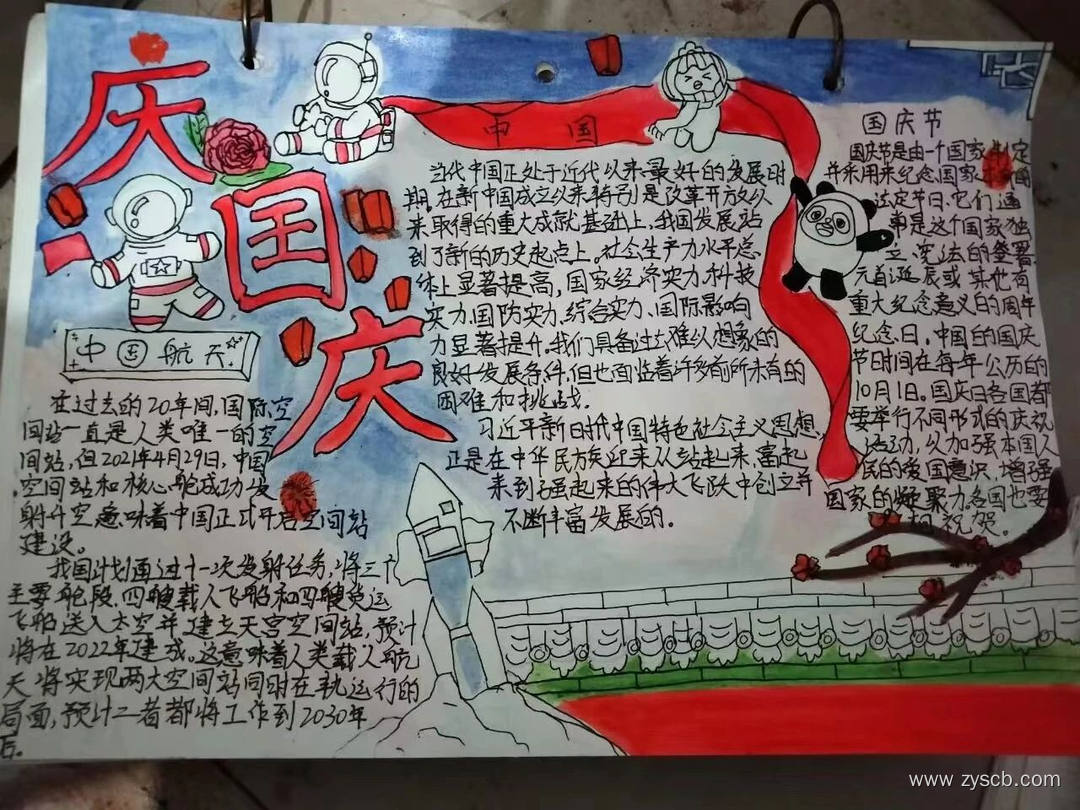 庆
国
庆
中国
中国航天
在过去的20年间,国际空
间站一直是人类唯一的空
间站,但2021年4月29日,中国
空间站和核心舱成功发
射升空,意味着中国正式开启空间站
建设。
我国计划通过十一次发射任务,将三个
主要舱段,四艘载人飞船和四艘货运
飞船送入太空并建立天宫空间站,预计
将在2022年建成。这意味着人类载人航
天将实现两大空间站同时在轨运行的
局面,预计二者都将工作到2030年
后。
当代中国正处于近代以来最好的发展时
期。在新中国成立以来特别是改革开放以
来取得的重大成就基础上,我国发展站
到了新的历史起点上。社会生产力水平总
体上显著提高,国家经济实力,科技
实力,国防实力,综合实力,国际影响
力显著提升。我们具备过去难以想象的
良好发展条件,但也面临着许多前所未有的
困难和挑战.
习近平新时代中国特色社会主义思想,
正是在中华民族迎来从站起来、富起
来到强起来的伟大飞跃中创立并
不断丰富发展的。
国庆节
国庆节是由一个国家制定
并来用来纪念国家本身的
法定节日.它们通
常是这个国家独
立、宪法的签署
元首诞辰或其他有
重大纪念意义的周年
纪念日。中国的国庆
节日时间在每年公历的
10月1日。国庆日各国都
要举行不同形式的庆祝
活动,以加强本国人
民的爱国意识,增强
国家的凝聚力.各国也要
祝贺。
www.zyscb.com